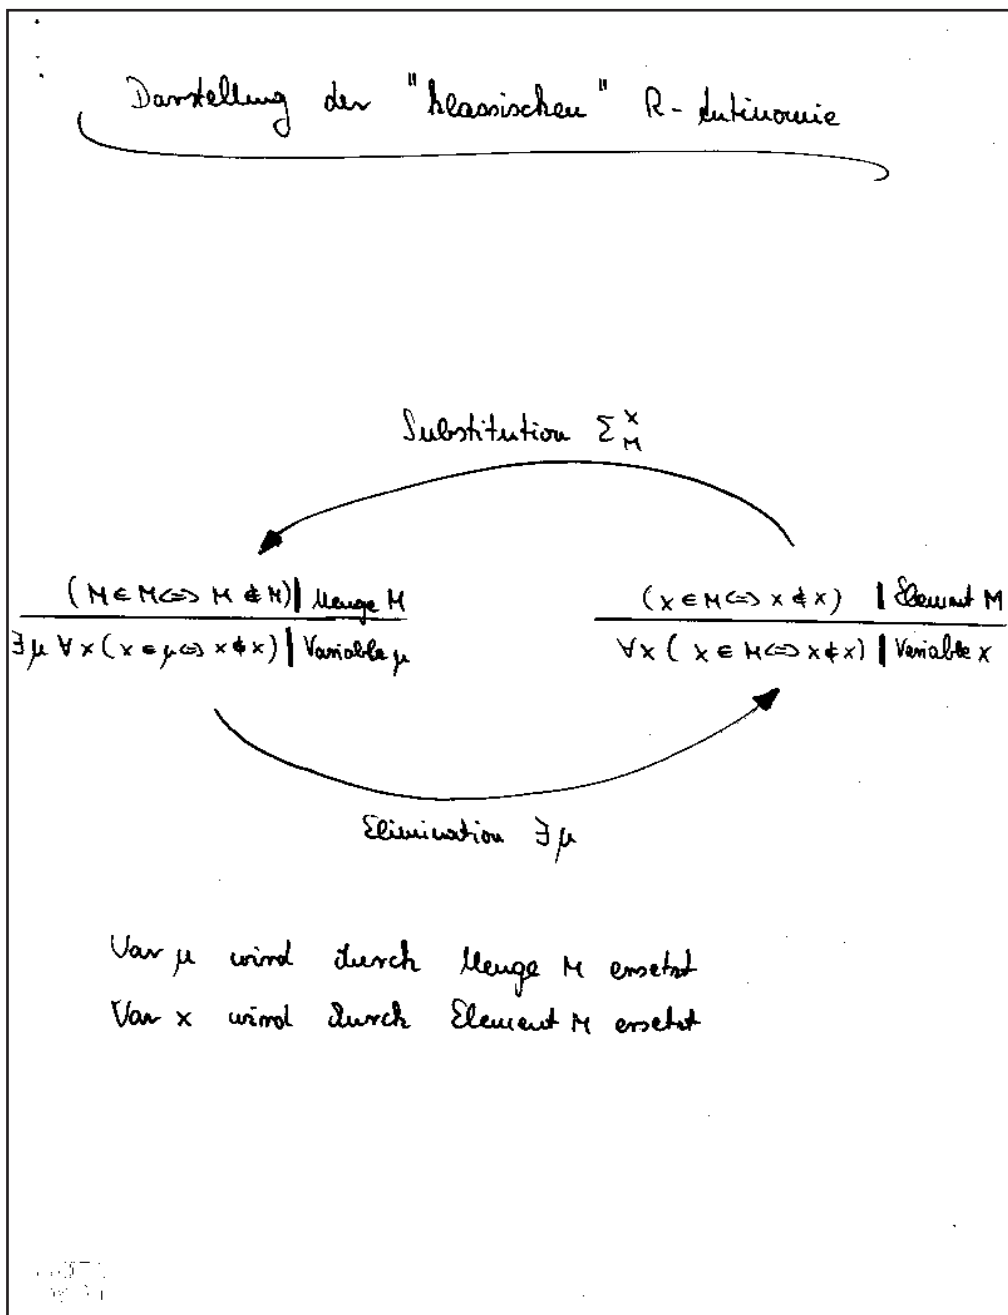 Darstellung der "klassischen" R-Antinomie
Substitution Σ^x_M
(M ∈ M ⇔ M ∉ M) | Menge M
∃μ ∀x (x ∈ μ ⇔ x ∉ x) | Variable μ
(x ∈ M ⇔ x ∉ x) | Element M
∀x (x ∈ M ⇔ x ∉ x) | Variable x
Elimination ∃μ
Var μ wird durch Menge M ersetzt
Var x wird durch Element M ersetzt